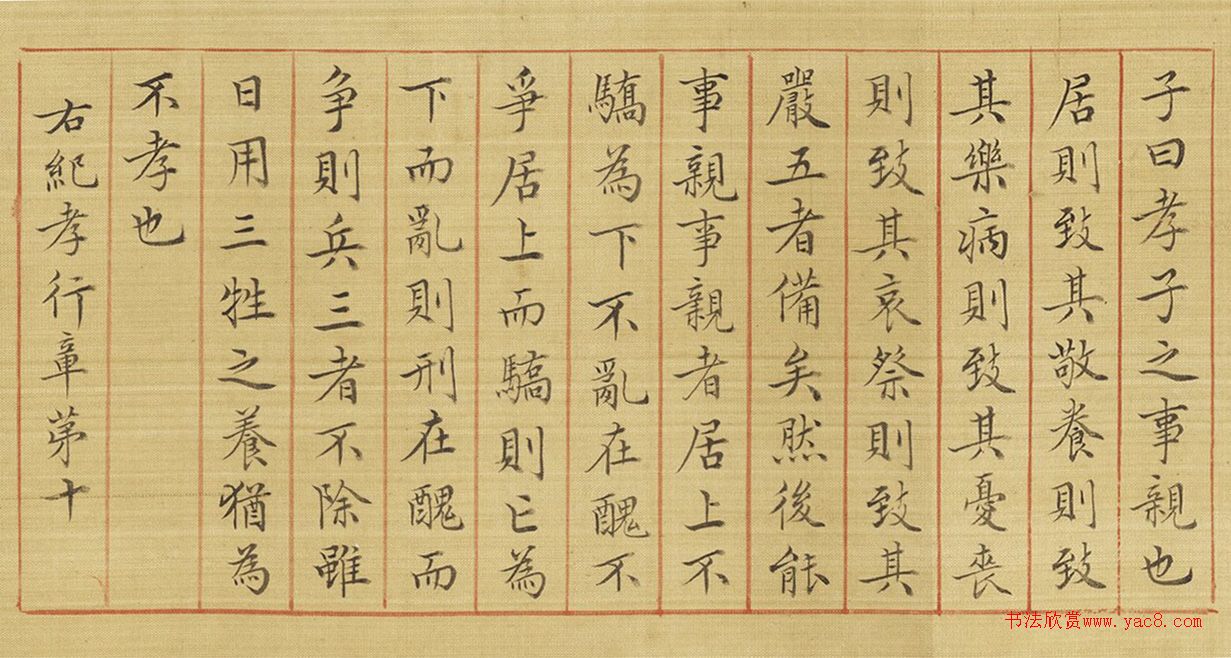 子曰孝子之事親也
居則致其敬養則致
其樂病則致其憂喪
則致其哀祭則致其
嚴五者備矣然後能
事親事親者居上不
驕為下不亂在醜不
爭居上而驕則亡為
下而亂則刑在醜而
爭則兵三者不除雖
日用三牲之養猶為
不孝也
右紀孝行章第十
书法欣赏www.yac8.com